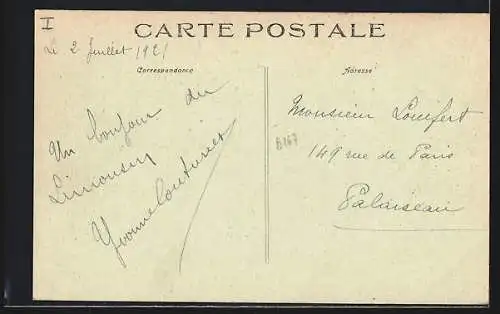 I
CARTE POSTALE
Le 2 Juillet 1921
Correspondance
Adresse
Un bonjour du
Limousin
Yvonne Couturier
B167
Monsieur Lomfert
149 rue de Paris
Palaiseau